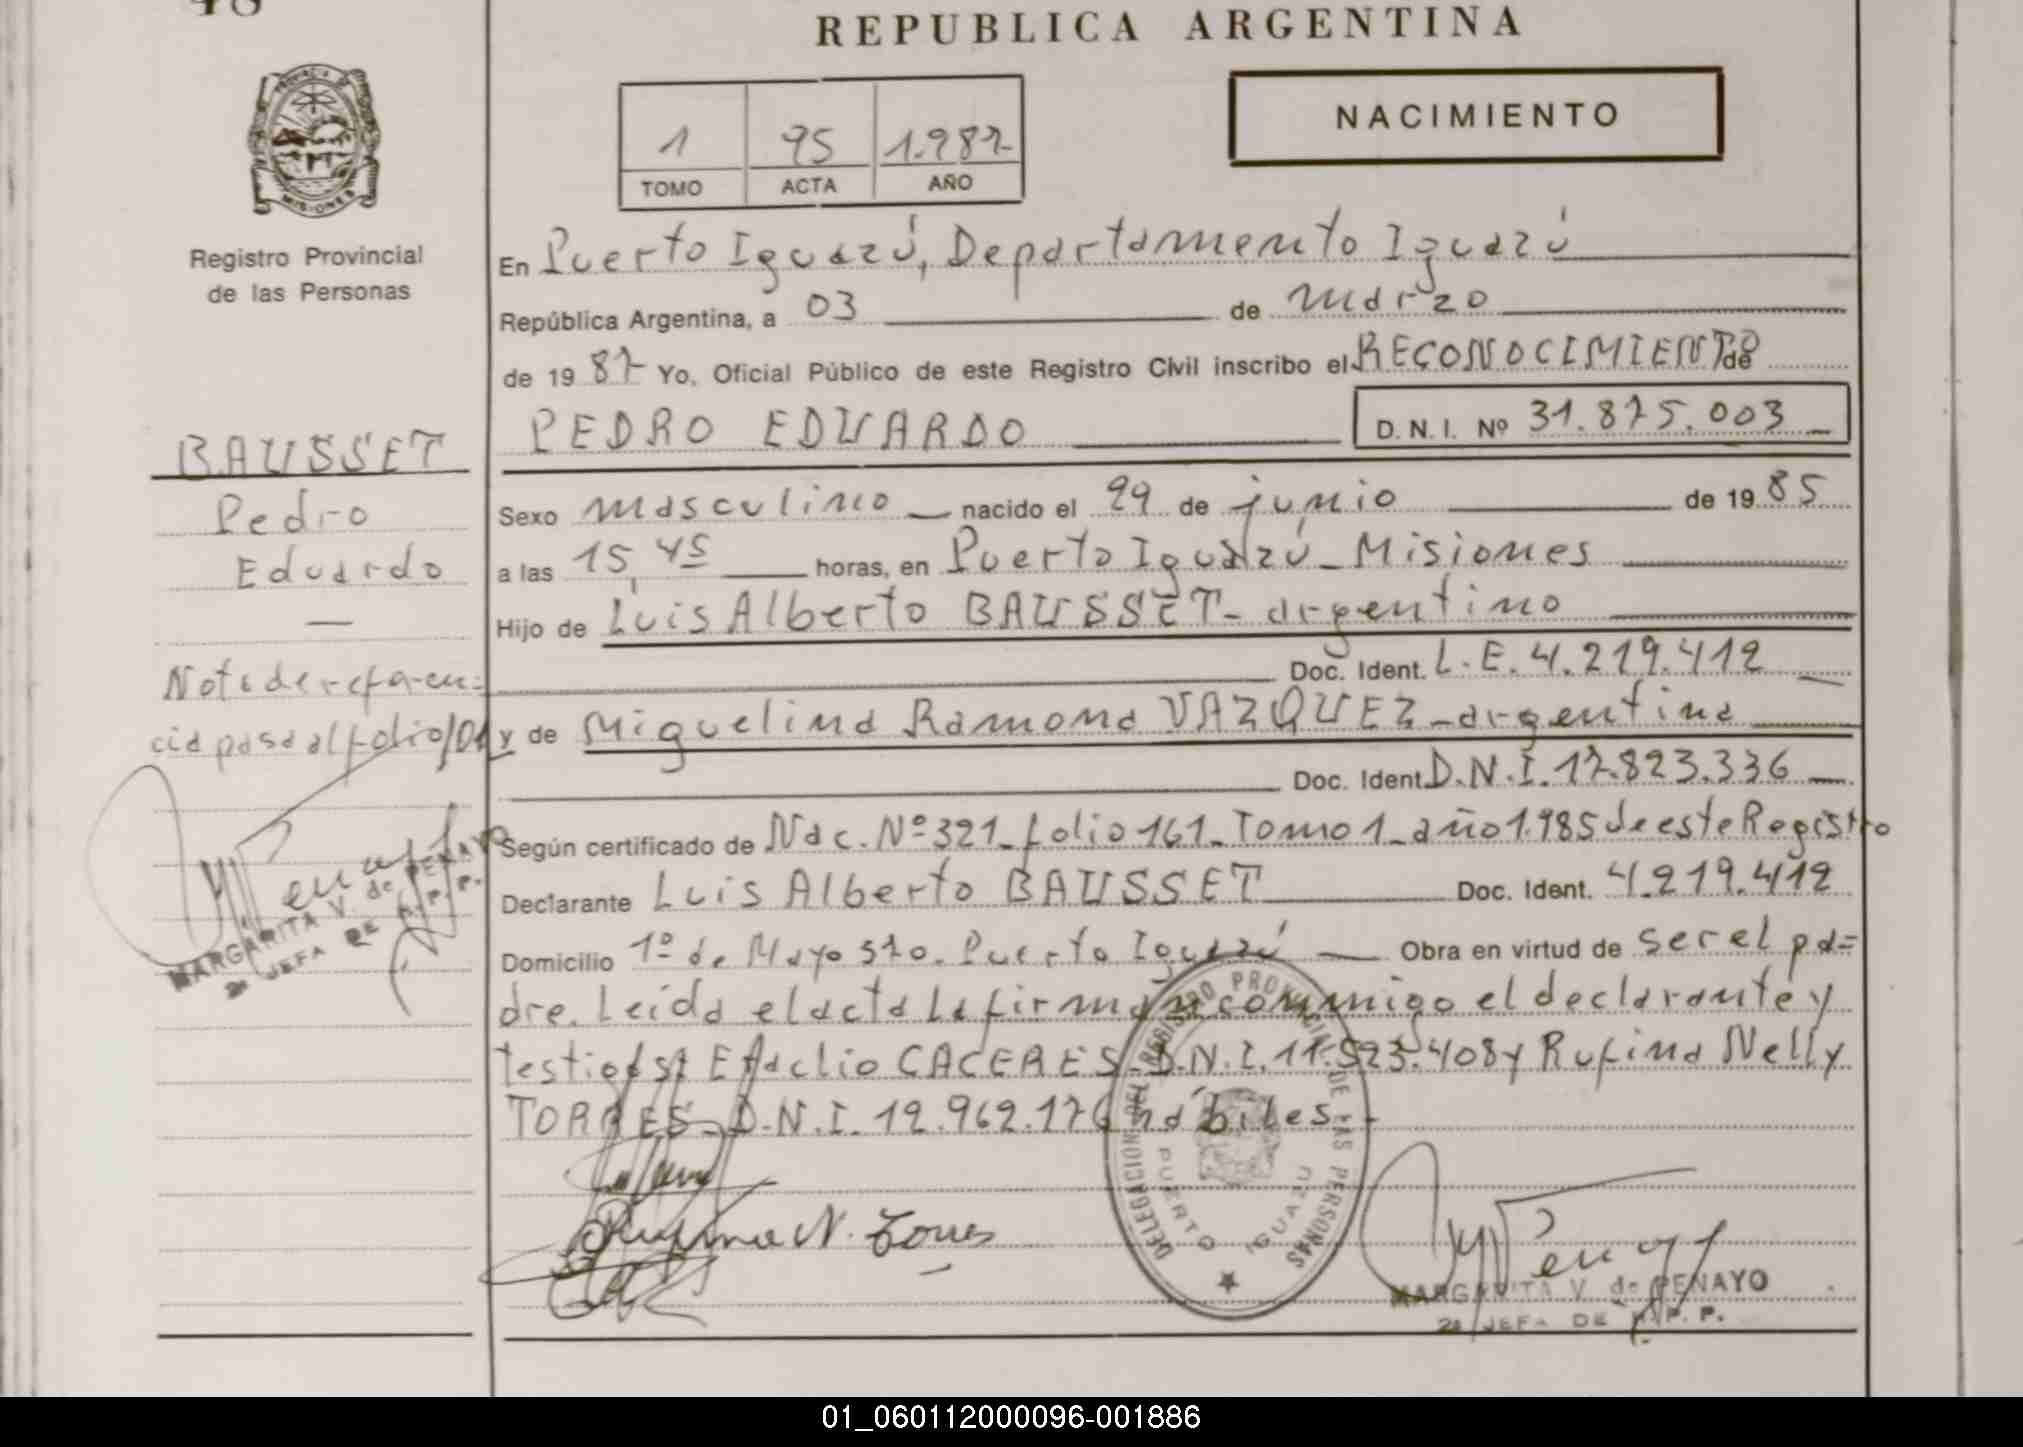 48
REPUBLICA ARGENTINA
NACIMIENTO
1 95 1.987
TOMO ACTA AÑO
PROVINCIA DE MISIONES
Registro Provincial
de las Personas
En Puerto Iguazú, Departamento Iguazú
República Argentina, a 03 de marzo
de 19 87 Yo, Oficial Público de este Registro Civil inscribo el RECONOCIMIENTO de
PEDRO EDUARDO D. N. I. Nº 31.875.003
BAUSSET
Pedro
Eduardo
Sexo masculino nacido el 29 de junio de 19 85
a las 15,45 horas, en Puerto Iguazú_Misiones
Hijo de Luis Alberto BAUSSET- argentino
Doc. Ident. L.E. 4.219.412
y de Miguelina Ramona VAZQUEZ-argentina
Doc. Ident. D.N.I. 17.823.336
Nota de referen=
cia pasa al folio
MARGARITA V. de PENAYO
2a JEFA DE R.P.P.
Según certificado de Nac. Nº 321_folio 161_Tomo 1_año 1.985 de este Registro
Declarante Luis Alberto BAUSSET Doc. Ident. 4.219.412
Domicilio 1º de Mayo s/no. Puerto Iguazú Obra en virtud de ser el pa=
dre. Leída el acta La firman conmigo el declarante y
testigos: CACERES-D.N.I. 11.523.408 y Rufina Nelly
TORRES-D.N.I. 12.962.176 hábiles.-
DELEGACION DEL REGISTRO PROVINCIAL DE LAS PERSONAS
PUERTO IGUAZU
Rufina N. Torres
MARGARITA V. de PENAYO
2a JEFA DE R.P.P.
01_060112000096-001886